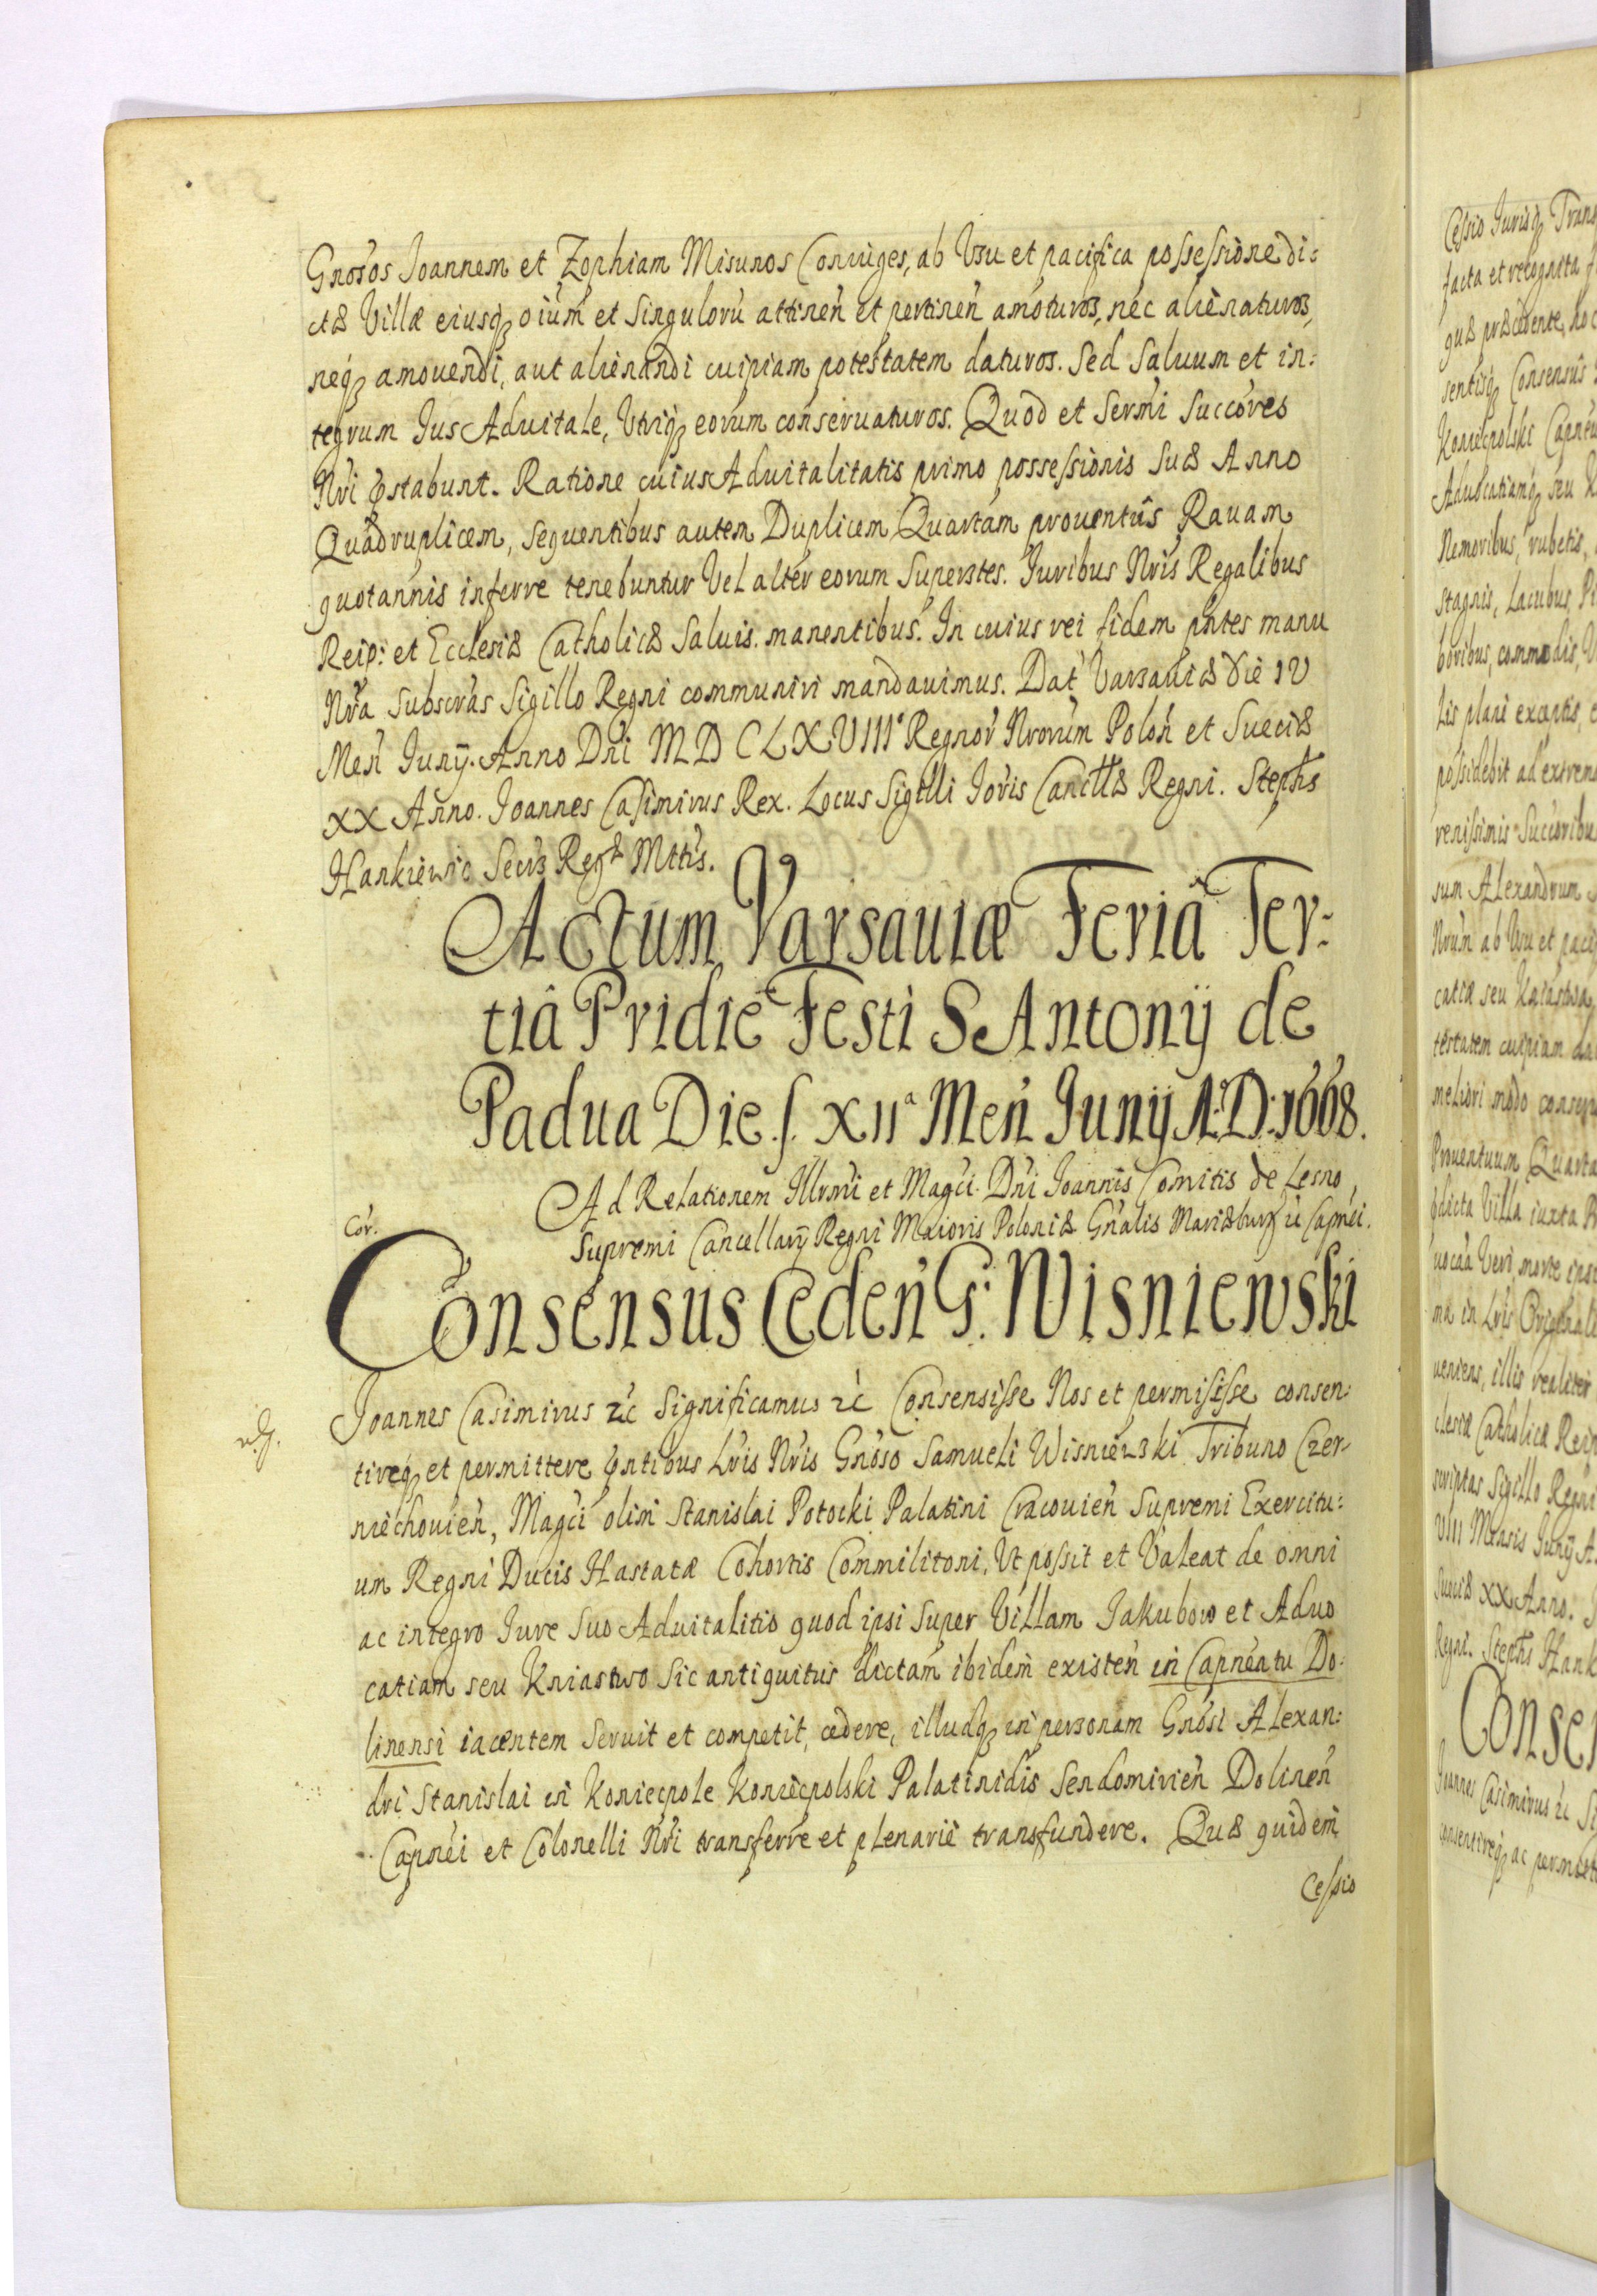 Gnosos Joannem et Zophiam Misunos Coniuges, ab Usu et pacifica possessione di:
ctæ Villæ eiusq; oium et singuloru attinen et pertinen amoturos, nec alienaturos,
neq; amouendi, aut alienandi cuipiam potestatem daturos. Sed saluum et in:
tegrum Jus Aduitale, Utriq; eorum conseruaturos. Quod et Sermi Succores
Nri pstabunt. Ratione cuius Aduitalitatis primo possessionis suæ Anno
Quadruplicem, sequentibus autem Duplicem Quartam prouentûs Rauam
quotannis inferre tenebuntur Vel alter eorum Superstes. Juribus Nris Regalibus
Reip: et Ecclesiæ Catholicæ saluis manentibus. In cuius rei fidem pntes manu
Nra subscras Sigillo Regni communiri mandauimus. Dat Varsauiæ Die IV
Men Junÿ. Anno Dni MDCLXVIII° Regnor Nrorum Polon et Sueciæ
XX Anno. Joannes Casimirus Rex. Locus Sigilli Joris Cancllæ Regni. Stephs
Hankiewic Secrs Regæ Mttis.
Actum Varsauiæ Feriâ Ter-
tiâ Pridie Festi S Antonÿ de
Padua Die s. XIIª Men Junÿ A:D:1668.
Ad Relationem Illrmi et Magci Dni Joannis Comitis de Lesno,
Supremi Cancellarÿ Regni Maioris Poloniæ Gnalis Mariæburg &c Capnei.
Cor.
Consensus Ceden G: Wisniewski
Joannes Casimirus &c Significamus &c Consensisse Nos et permisisse consen:
tireq; et permittere pntibus Lris Nris Gnoso Samueli Wisniewski Tribuno Czer-
niechouien, Magci olim Stanislai Potocki Palatini Cracouien Supremi Exercitu:
um Regni Ducis Hastatæ Cohortis Commilitoni, Ut possit et Valeat de omni
ac integro Jure suo Aduitalitio quod ipsi super Villam Jakubow et Aduo
catiam seu Kniastwo sic antiquitus dictam ibidem existen in Capneatu Do:
linensi iacentem seruit et competit, cedere, illudq; in personam Gnosi Alexan:
dri Stanislai in Koniecpole Koniecpolski Palatinidis Sendomirien Dolinen
Capnei et Colonelli Nri transferre et plenarie transfundere. Quæ quidem
Cessio